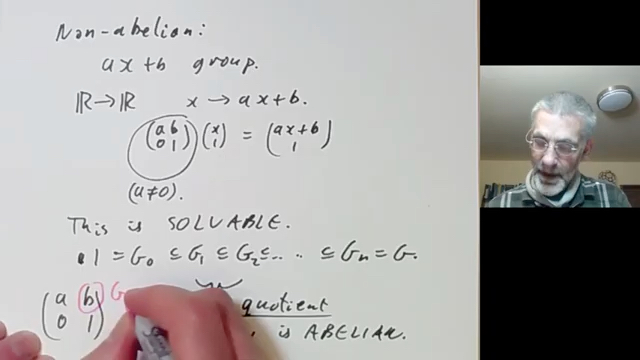 Non-abelian:
ax+b group.
ℝ→ℝ x → ax+b.
(a b; 0 1) (x; 1) = (ax+b; 1)
(a≠0).
This is SOLUABLE.
1 = G₀ ⊆ G₁ ⊆ G₂ ⊆ .. .. ⊆ Gₙ = G.
(a b; 0 1) G quotient
is ABELIAN.